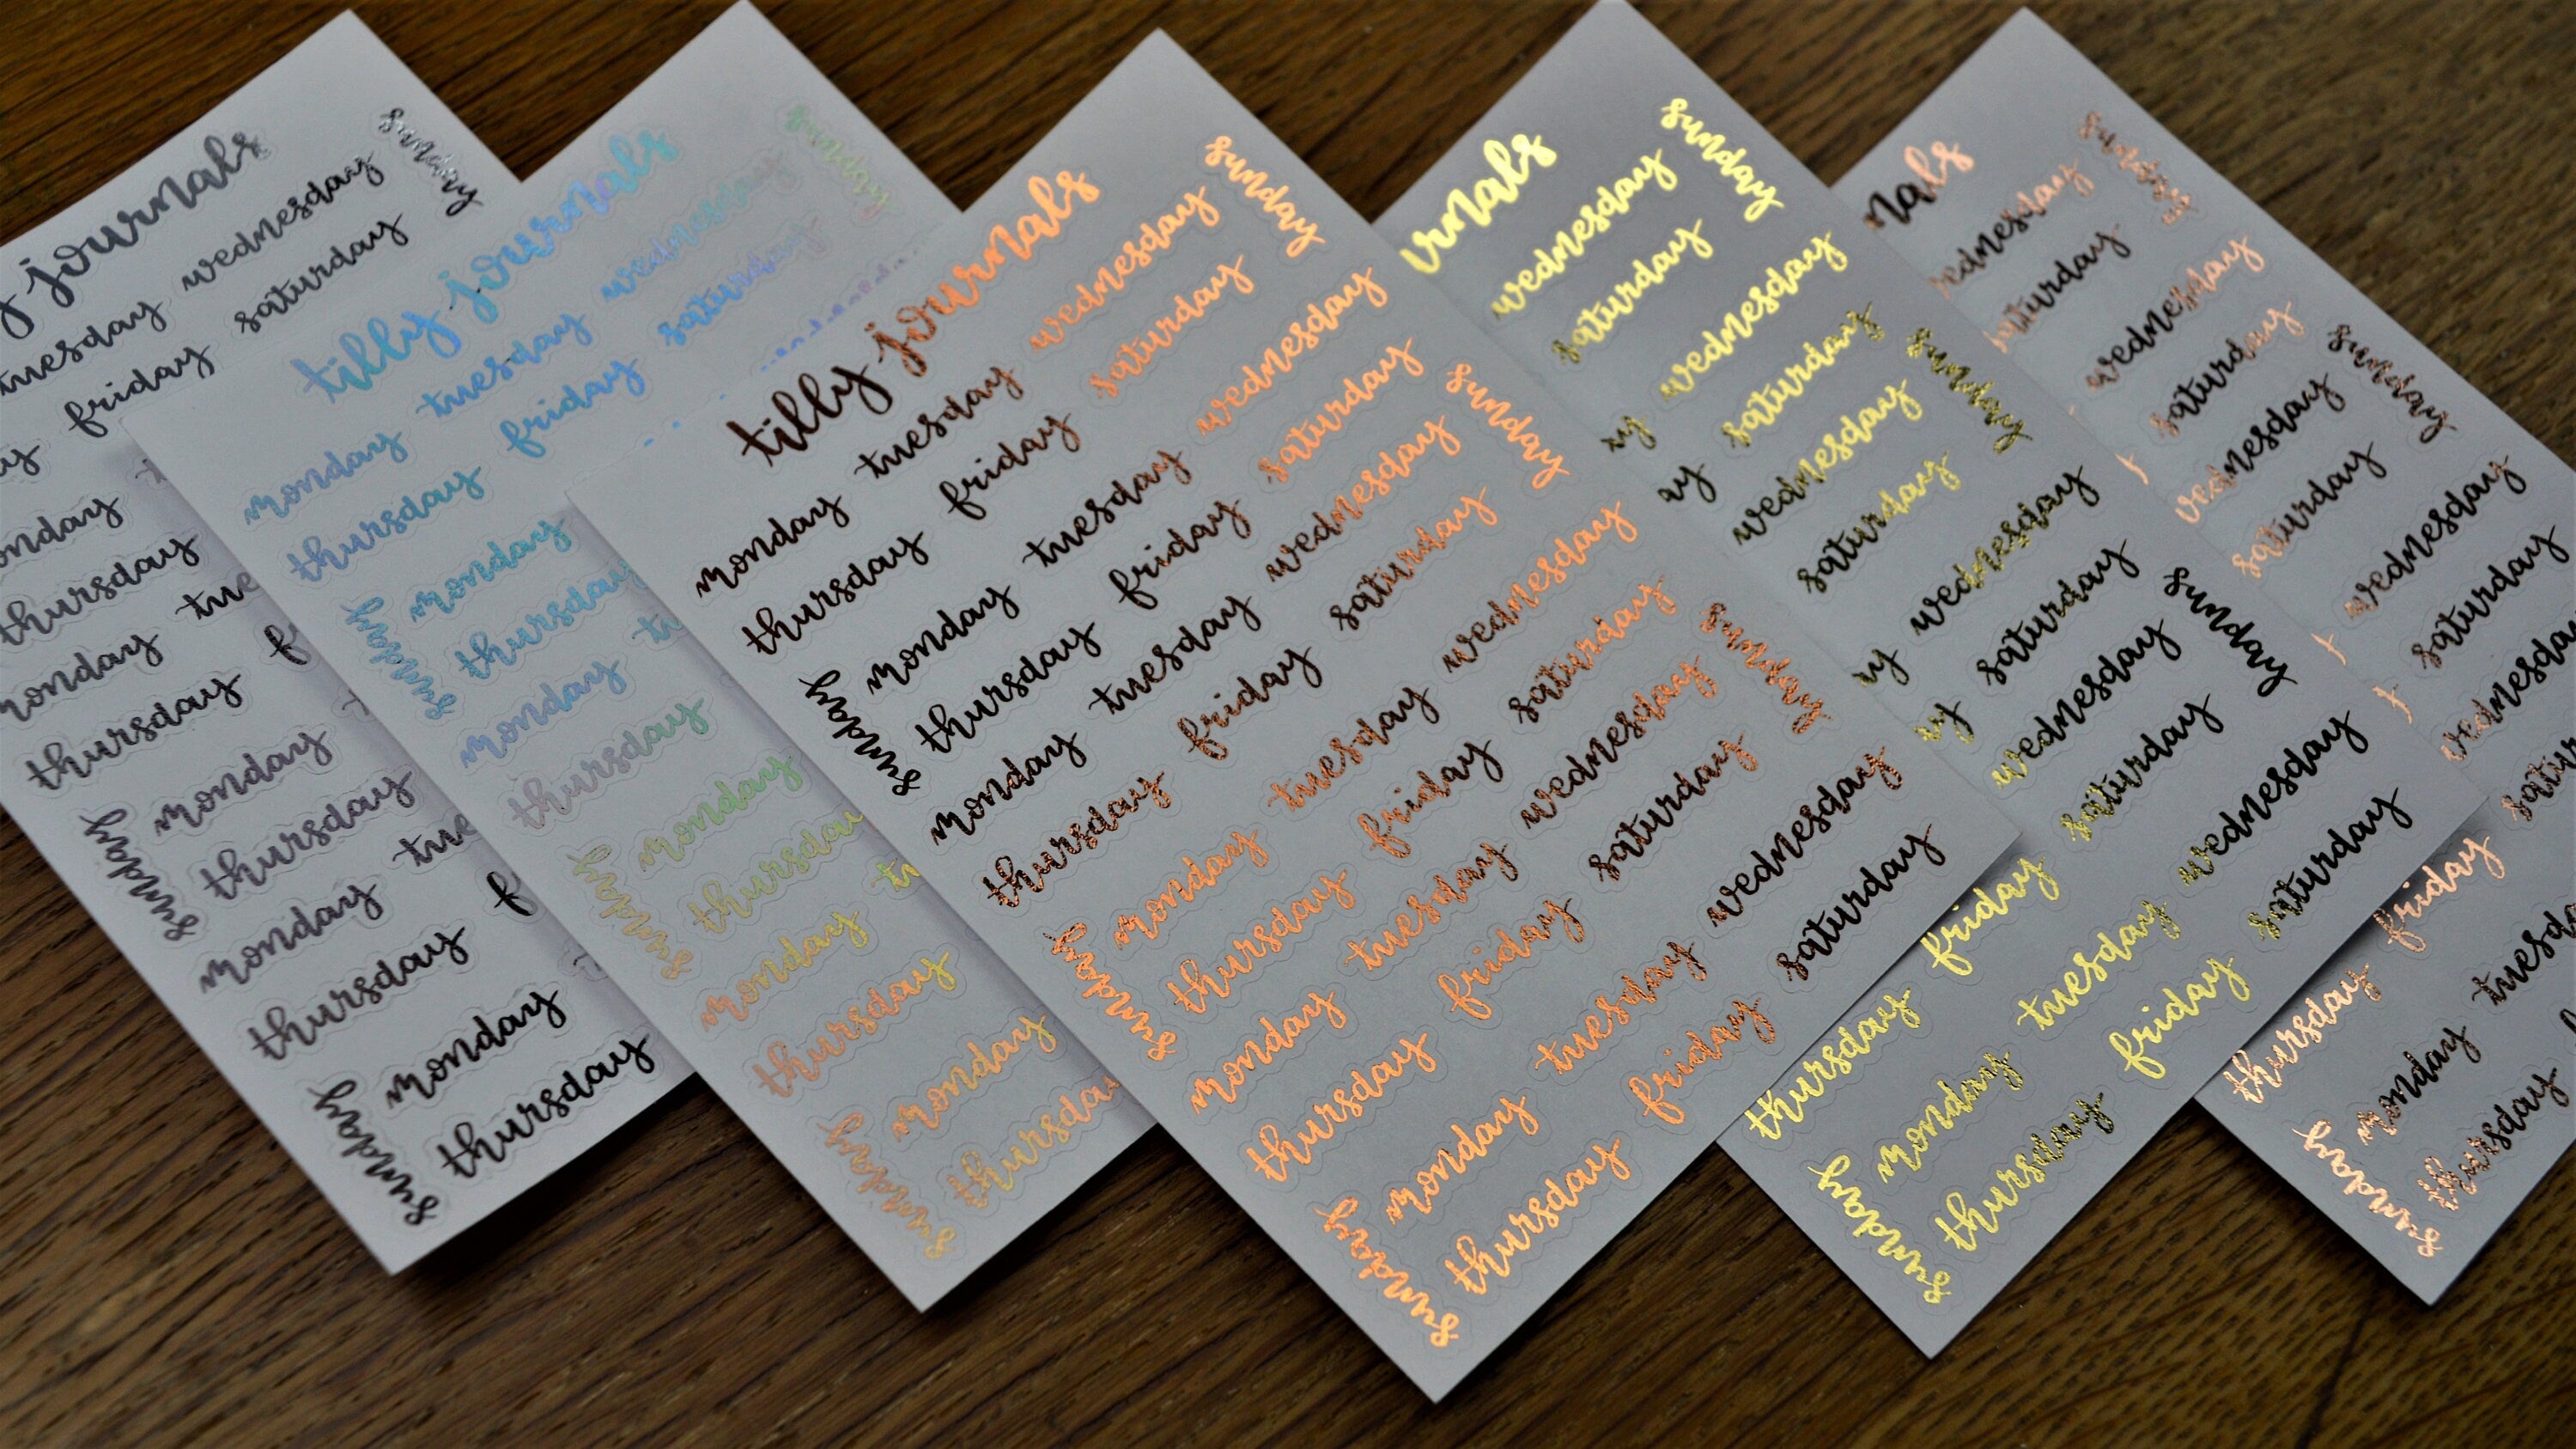 journals
sunday
tuesday wednesday
friday saturday
monday
thursday
monday
thursday
sunday
monday
thursday
monday
thursday
sunday
monday
thursday
tilly journals
sunday
monday tuesday wednesday
thursday friday saturday
sunday
monday
thursday
monday
thursday
sunday
monday
thursday
monday
thursday
sunday
monday
thursday
tilly journals
sunday
monday tuesday wednesday
thursday friday saturday
monday tuesday wednesday
sunday
thursday friday saturday
sunday
monday tuesday wednesday
thursday friday saturday
monday tuesday wednesday
sunday
thursday friday saturday
sunday
monday tuesday wednesday
thursday friday saturday
monday tuesday wednesday
sunday
thursday friday saturday
sunday
wednesday
saturday
wednesday
saturday
sunday
wednesday
saturday
wednesday
saturday
sunday
wednesday
thursday friday saturday
monday tuesday wednesday
sunday
thursday friday saturday
sunday
wednesday
saturday
sunday
wednesday
saturday
wednesday
saturday
thursday friday
monday
sunday
thursday